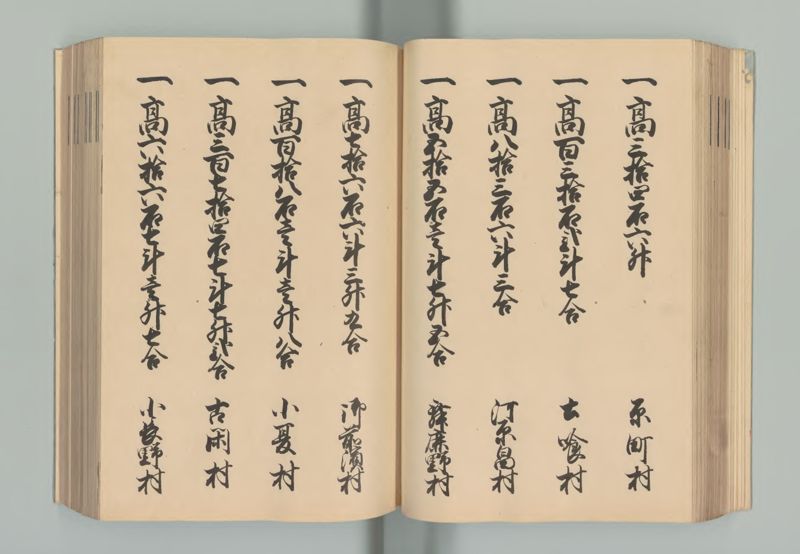 一高三拾四石六升 原町村
一高百三拾石弐斗七合 土喰村
一高八拾三石六斗三合 村
一高五拾五石壱斗七升五合 野村
一高七拾六石六斗三升九合 御前濱村
一高百拾八石壱斗壱升八合 小夏村
一高三百七拾四石七斗七升弐合 古閑村
一高六拾六石七斗壱升七合 小牧野村